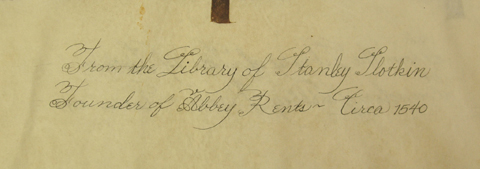 From the Library of Stanley Slotkin
Founder of Abbey Rents ~ Circa 1540